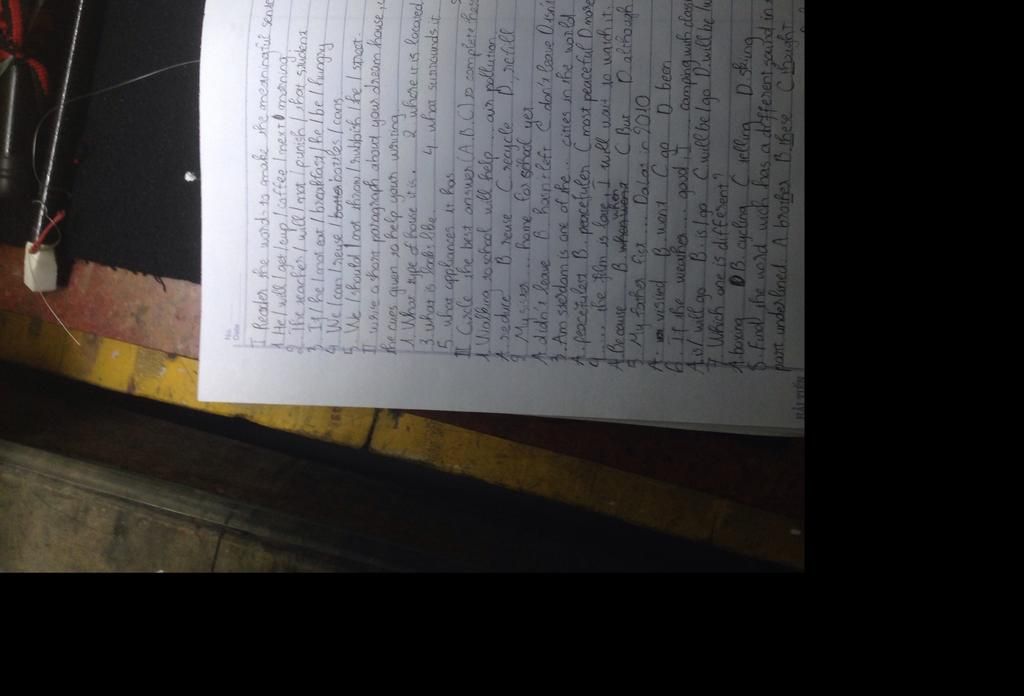 No.
Date
I Reader the words to make the meaningful sente
1. He / will / get / up / coffee / next morning
2. The teacher / will / not / punish / that student
3. If / he / not eat / breakfast / he / be / hungry
4. We / can / reuse / bottles / cans
5. We / should / not throw / rubbish the / street.
II write a short paragraph about your dream house,
the cues given to help your writing
1. What type of house it is. 2 where it is located
3 what it looks like 4. what surrounds it
5. what appliances it has
III Circle the best answer (A.B.C) to complete these
1. Walking to school will help ..... air pollution
A. reduce B reuse C recycle D, refill
2 My sister ...... home for school yet
A. didn't leave B. hasn't left C don't leave D isn't
3. Am sterdam is one of the .... cities in the world
A. peacefulest B. peacefuler C most peaceful D more
4. ..... the film is late, I will wait to watch it.
A. Because B. when C But D although
5 My father first .... Dalat in 2010
A. visited B went C go D been
6. If the weather .... good, I .... camping with class
A. is / will go B. is / go C will be / go D will be / wi
7. Which one is different?
A. boxing B. cycling C telling D skiing
8. Find the word wich has a different sound in
part underlined A brother B these C Bought
HẢI TIẾN